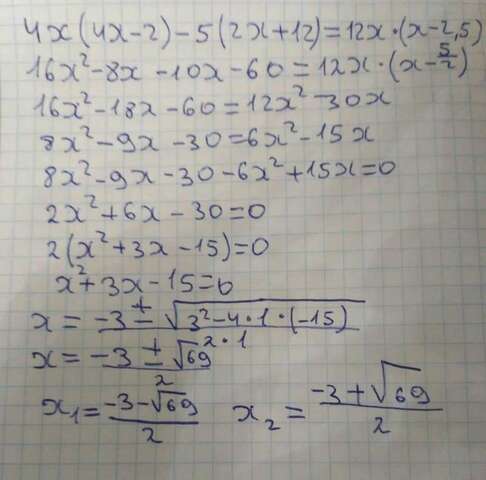 4x(4x-2)-5(2x+12)=12x·(x-2,5)
16x²-8x-10x-60=12x·(x-5/2)
16x²-18x-60=12x²-30x
8x²-9x-30=6x²-15x
8x²-9x-30-6x²+15x=0
2x²+6x-30=0
2(x²+3x-15)=0
x²+3x-15=0
x = (-3±√(3²-4·1·(-15)))/(2·1)
x = (-3±√69)/2
x₁=(-3-√69)/2 x₂=(-3+√69)/2